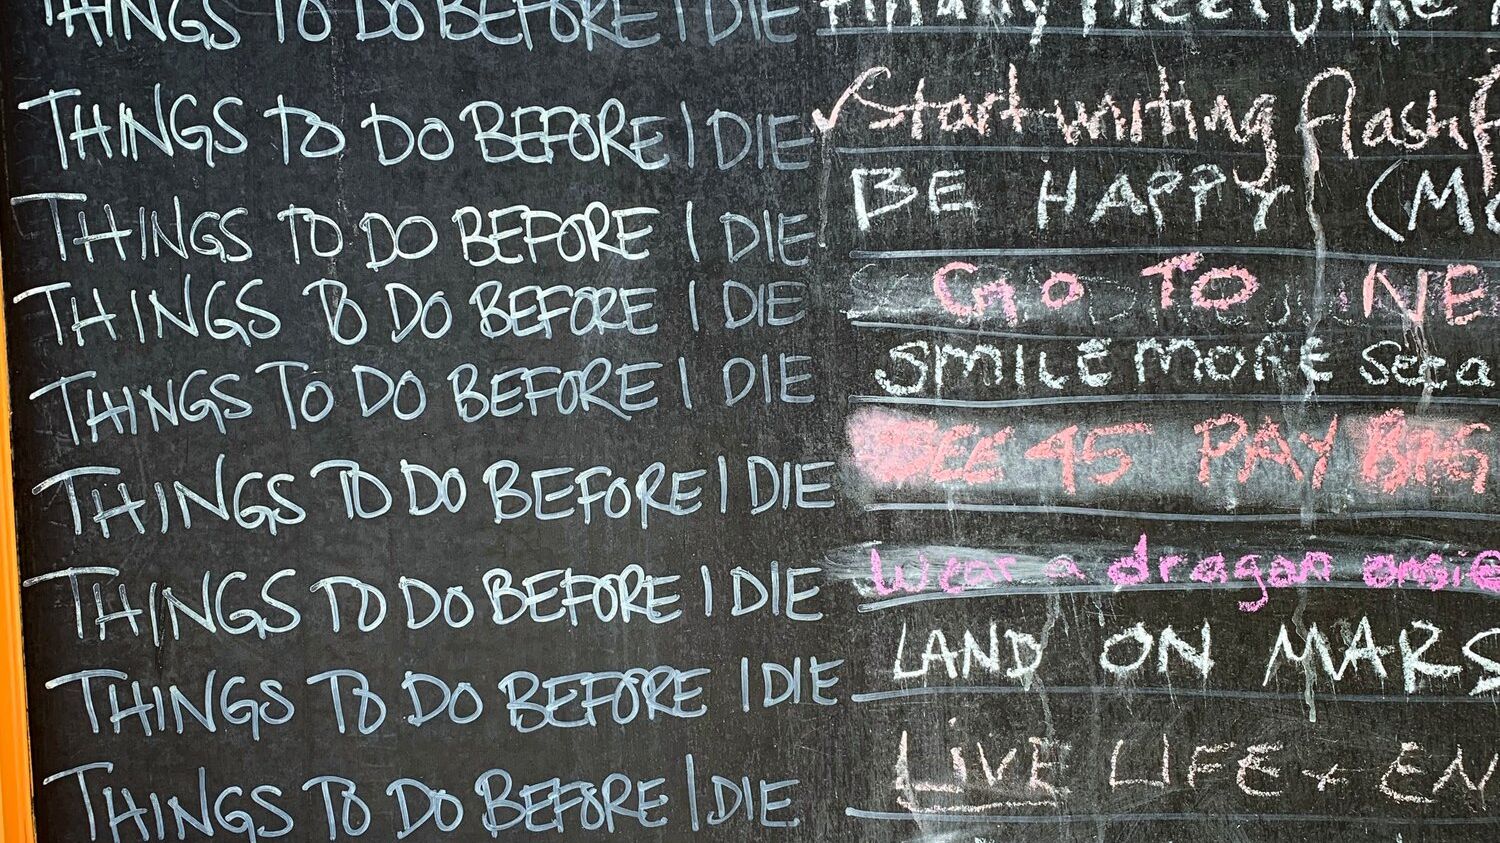 THINGS TO DO BEFORE I DIE
THINGS TO DO BEFORE I DIE Start writing flash
THINGS TO DO BEFORE I DIE BE HAPPY
THINGS TO DO BEFORE I DIE GO TO NE
THINGS TO DO BEFORE I DIE SMILE MORE
THINGS TO DO BEFORE I DIE SEE 45 PAY
THINGS TO DO BEFORE I DIE Wear a dragon onsie
THINGS TO DO BEFORE I DIE LAND ON MARS
THINGS TO DO BEFORE I DIE LIVE LIFE + EN